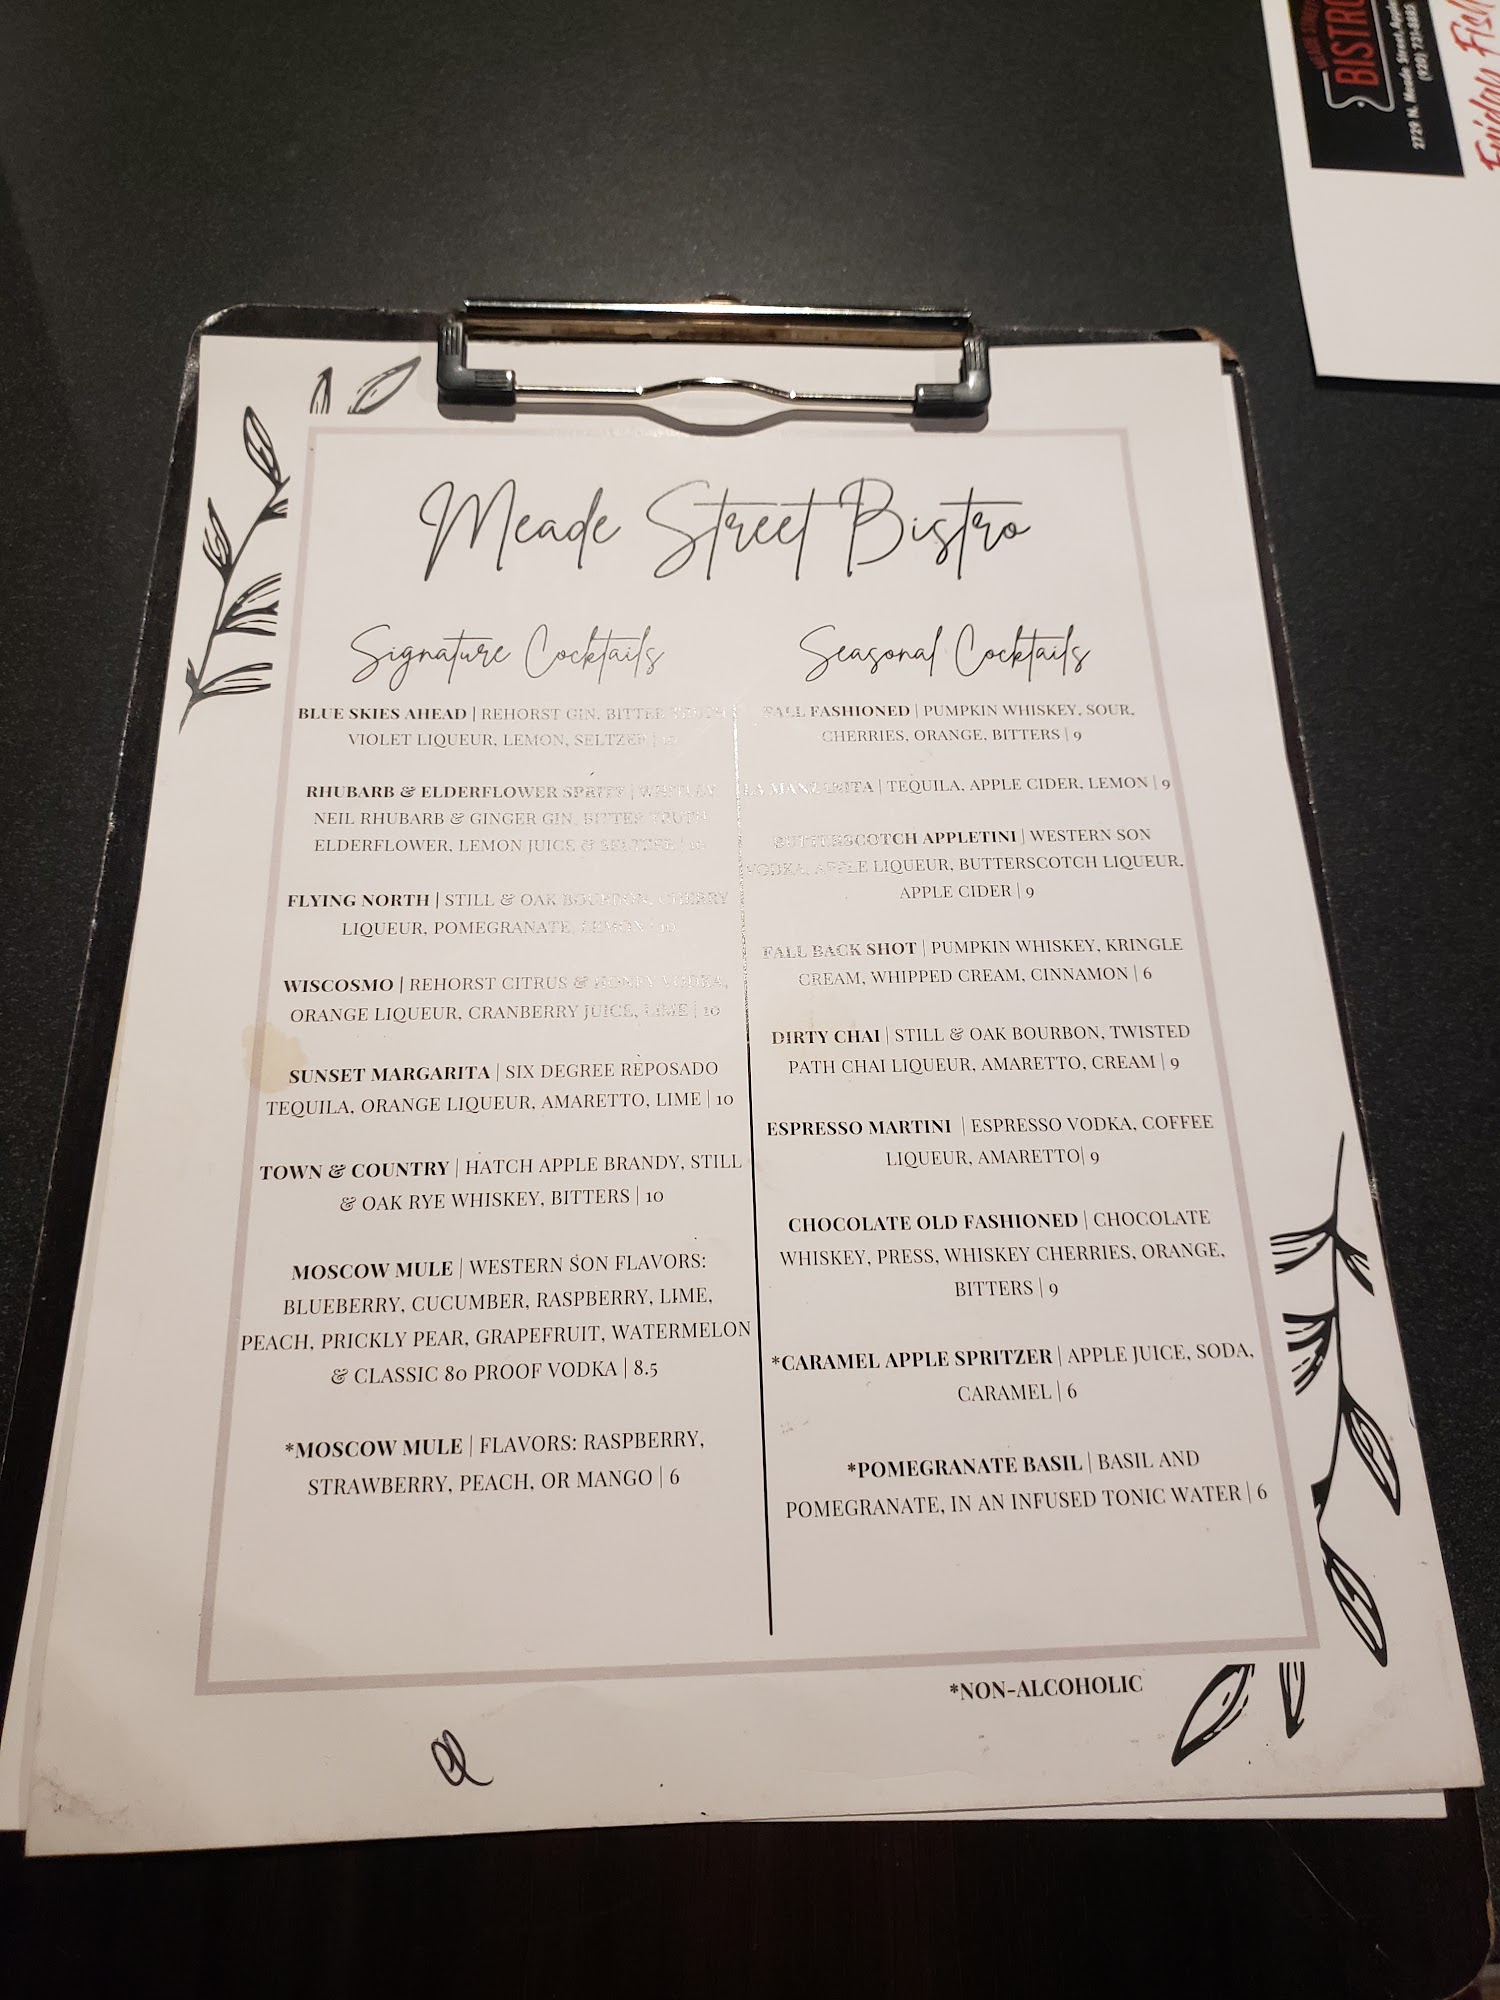 Meade Street Bistro
Signature Cocktails
BLUE SKIES AHEAD | REHORST GIN, BITTER TRUTH
VIOLET LIQUEUR, LEMON, SELTZER | 10
RHUBARB & ELDERFLOWER SPRITZ | WHITLEY
NEIL RHUBARB & GINGER GIN, BITTER TRUTH
ELDERFLOWER, LEMON JUICE & SELTZER | 10
FLYING NORTH | STILL & OAK BOURBON, CHERRY
LIQUEUR, POMEGRANATE, LEMON | 10
WISCOSMO | REHORST CITRUS & HONEY VODKA,
ORANGE LIQUEUR, CRANBERRY JUICE, LIME | 10
SUNSET MARGARITA | SIX DEGREE REPOSADO
TEQUILA, ORANGE LIQUEUR, AMARETTO, LIME | 10
TOWN & COUNTRY | HATCH APPLE BRANDY, STILL
& OAK RYE WHISKEY, BITTERS | 10
MOSCOW MULE | WESTERN SON FLAVORS:
BLUEBERRY, CUCUMBER, RASPBERRY, LIME,
PEACH, PRICKLY PEAR, GRAPEFRUIT, WATERMELON
& CLASSIC 80 PROOF VODKA | 8.5
*MOSCOW MULE | FLAVORS: RASPBERRY,
STRAWBERRY, PEACH, OR MANGO | 6
Seasonal Cocktails
FALL FASHIONED | PUMPKIN WHISKEY, SOUR,
CHERRIES, ORANGE, BITTERS | 9
LA MANZANITA | TEQUILA, APPLE CIDER, LEMON | 9
BUTTERSCOTCH APPLETINI | WESTERN SON
VODKA, APPLE LIQUEUR, BUTTERSCOTCH LIQUEUR,
APPLE CIDER | 9
FALL BACK SHOT | PUMPKIN WHISKEY, KRINGLE
CREAM, WHIPPED CREAM, CINNAMON | 6
DIRTY CHAI | STILL & OAK BOURBON, TWISTED
PATH CHAI LIQUEUR, AMARETTO, CREAM | 9
ESPRESSO MARTINI | ESPRESSO VODKA, COFFEE
LIQUEUR, AMARETTO| 9
CHOCOLATE OLD FASHIONED | CHOCOLATE
WHISKEY, PRESS, WHISKEY CHERRIES, ORANGE,
BITTERS | 9
*CARAMEL APPLE SPRITZER | APPLE JUICE, SODA,
CARAMEL | 6
*POMEGRANATE BASIL | BASIL AND
POMEGRANATE, IN AN INFUSED TONIC WATER | 6
*NON-ALCOHOLIC
MEADE STREET
BISTRO
2729 N. Meade Street, Apple
(920) 731-8885
Friday Fish